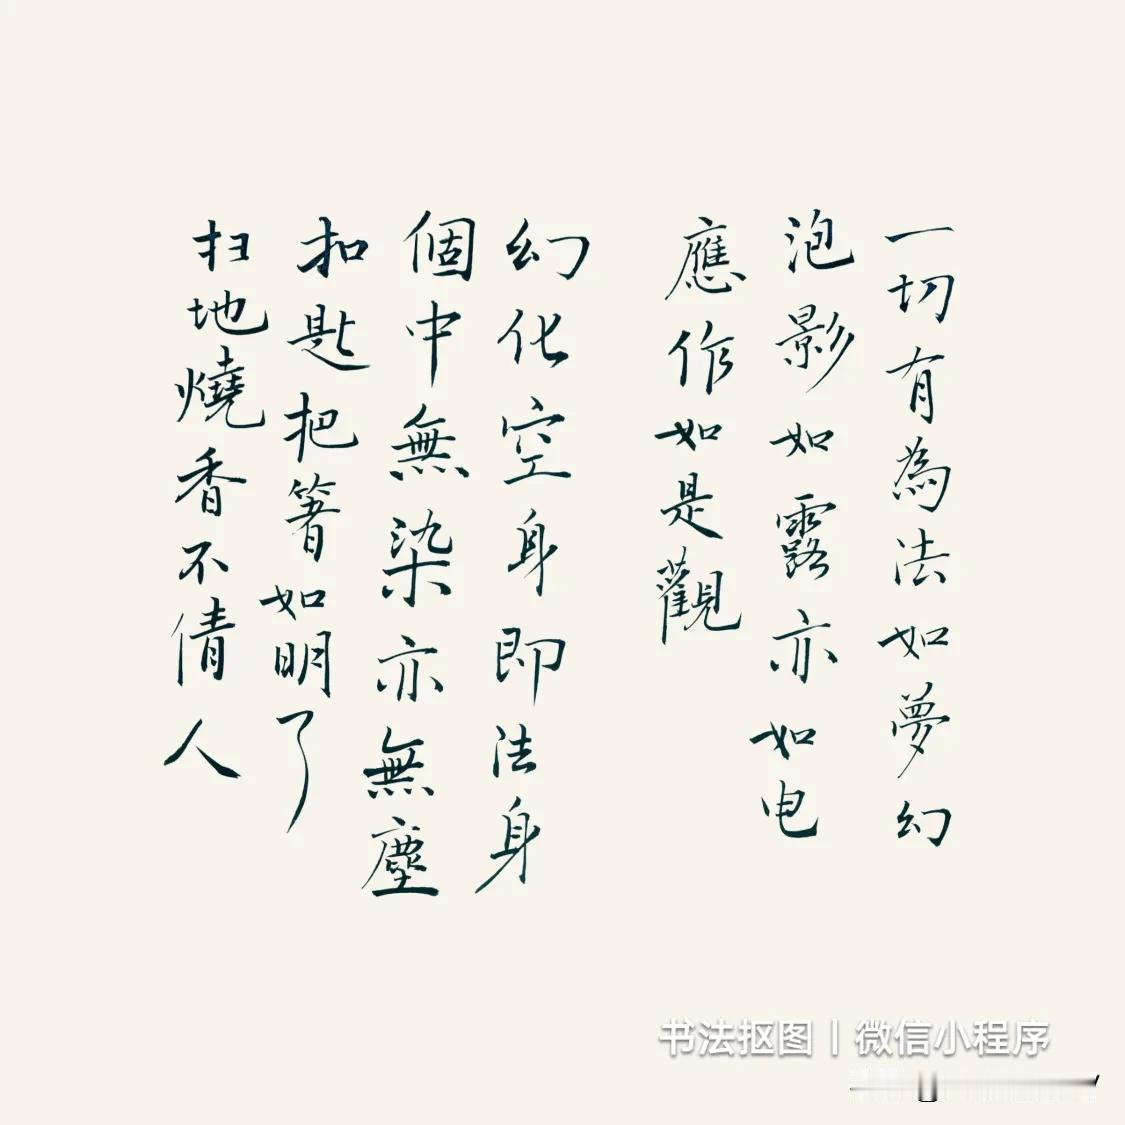 一切有為法如夢幻
泡影如露亦如电
應作如是觀
幻化空身即法身
個中無染亦無塵
扣匙把箸如明了
扫地燒香不倩人
书法抠图丨微信小程序